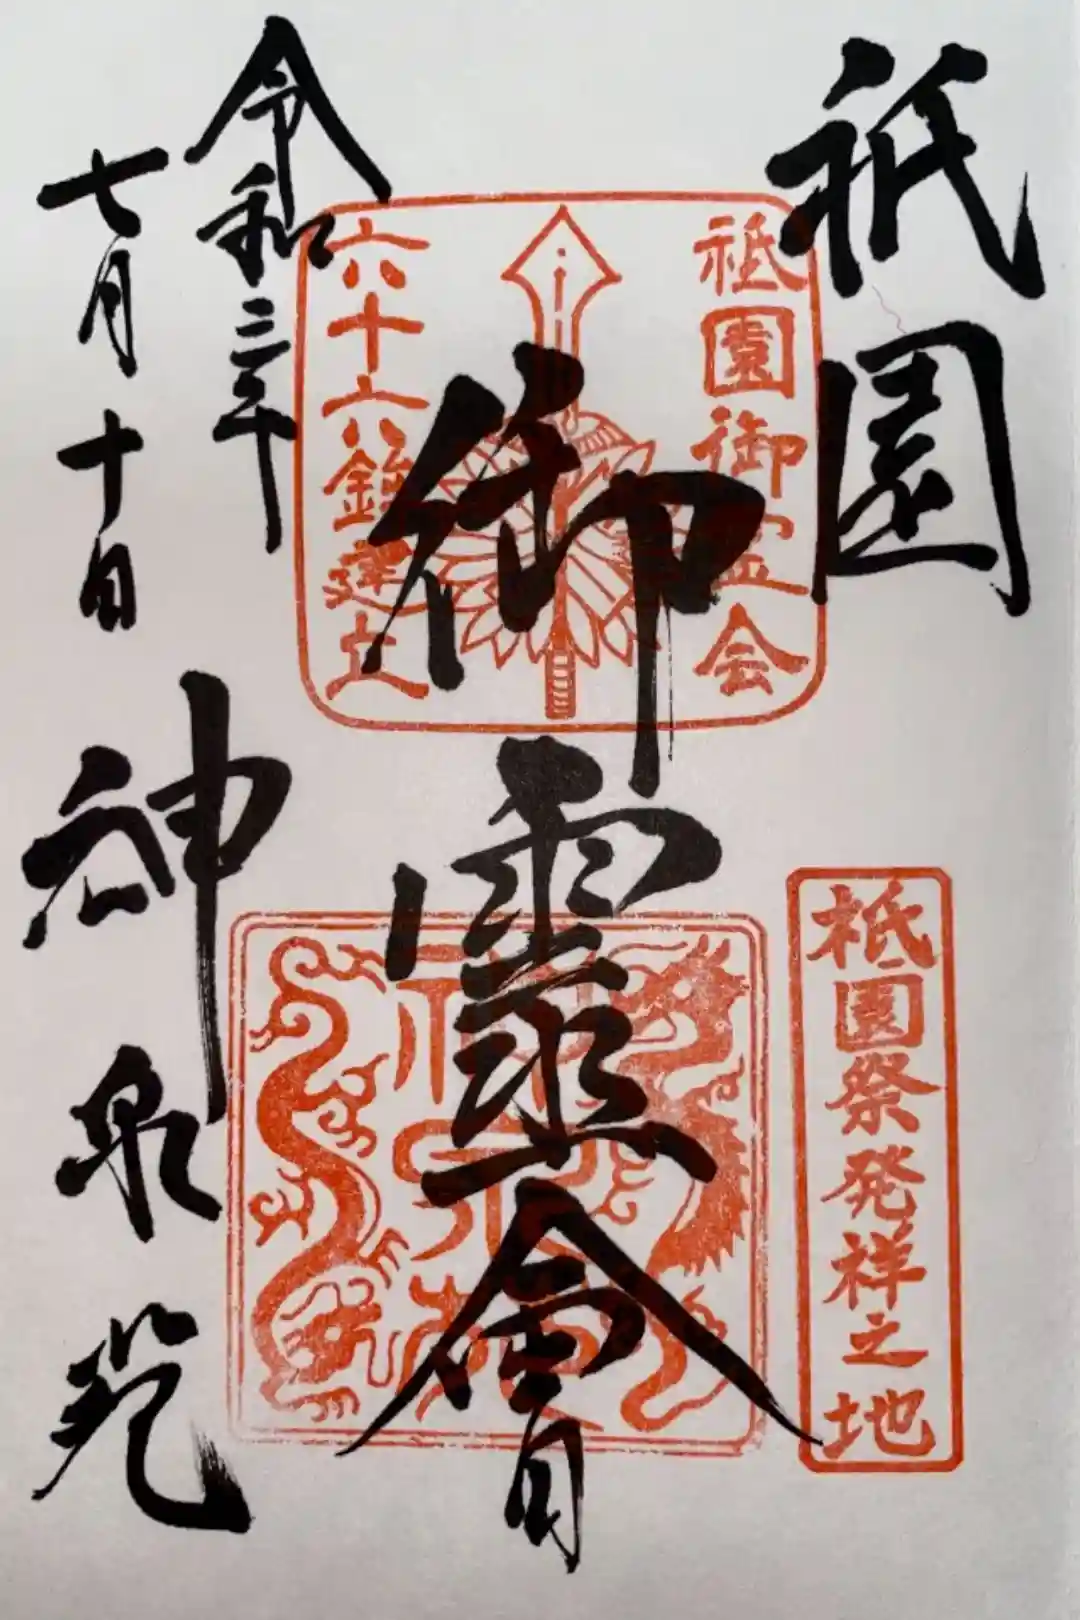 祇園
祇園御霊会
御靈會
六十六鉾建立
祇園祭発祥之地
令和三年
七月十日
神泉苑